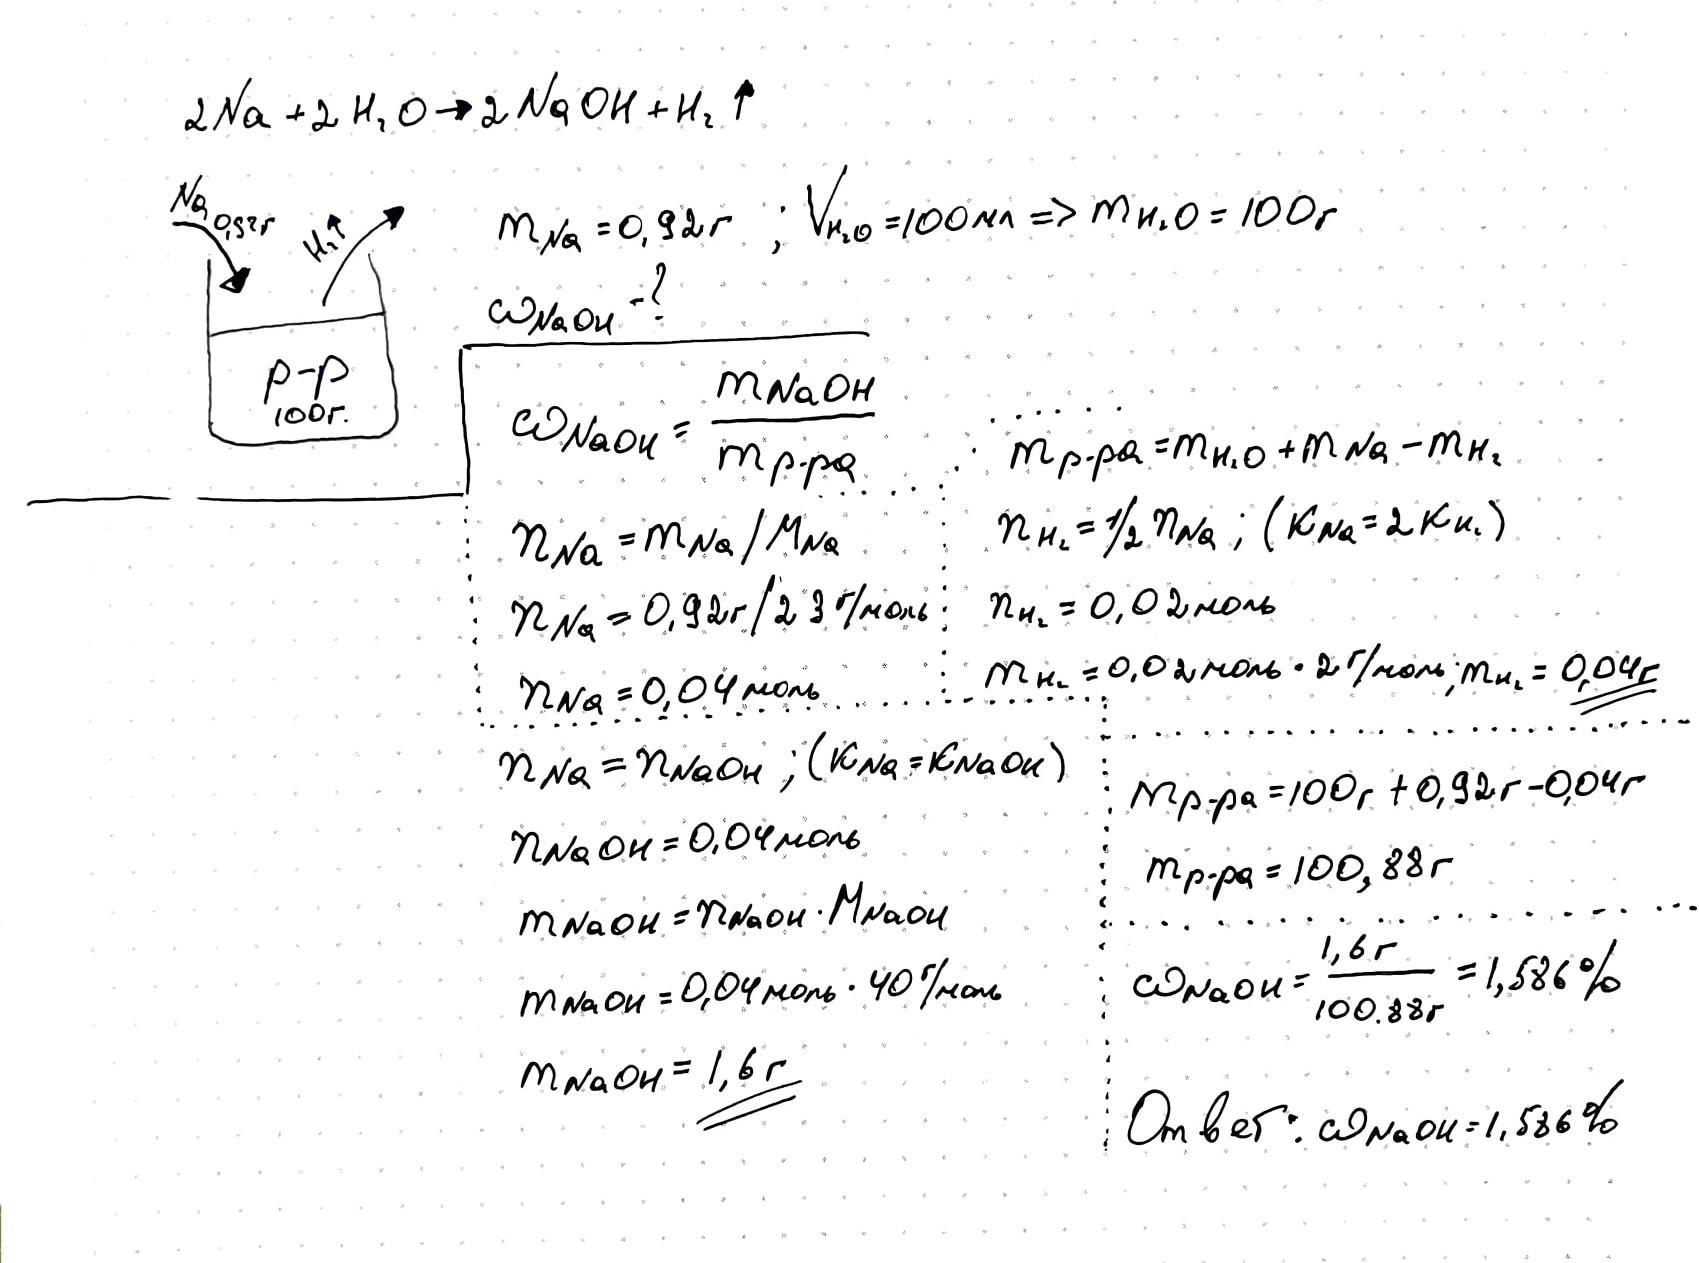 2Na + 2H₂O → 2NaOH + H₂↑
Na 0,92г
H₂↑
р-р
100г.
mNa = 0,92г ; VH₂O = 100мл => mH₂O = 100г
ωNaOH - ?
ωNaOH = mNaOH / mр-ра
nNa = mNa / MNa
nNa = 0,92г / 23 г/моль
nNa = 0,04 моль
mр-ра = mH₂O + mNa - mH₂
nH₂ = 1/2 nNa ; (KNa = 2KH₂)
nH₂ = 0,02 моль
mH₂ = 0,02 моль · 2 г/моль; mH₂ = 0,04г
nNa = nNaOH ; (KNa = KNaOH)
nNaOH = 0,04 моль
mNaOH = nNaOH · MNaOH
mNaOH = 0,04 моль · 40 г/моль
mNaOH = 1,6 г
mр-ра = 100г + 0,92г - 0,04г
mр-ра = 100,88г
ωNaOH = 1,6 г / 100.88г = 1,586%
Ответ: ωNaOH = 1,586%